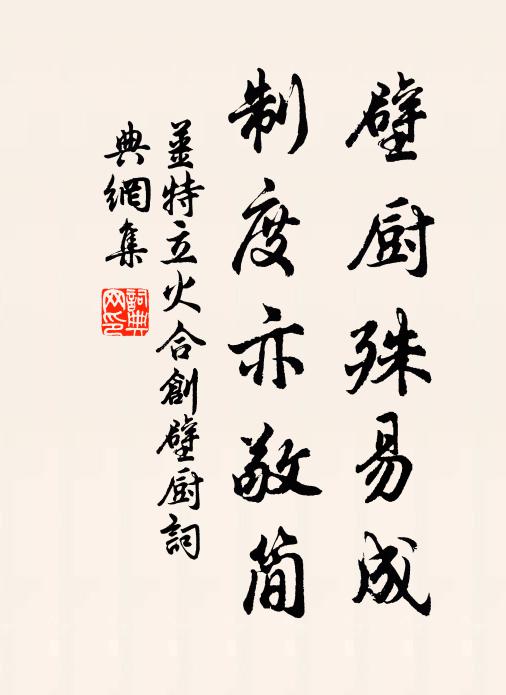 壁厨殊易成
制度亦敬简
薑特立火合創壁厨詞
典網集
詞典
网印